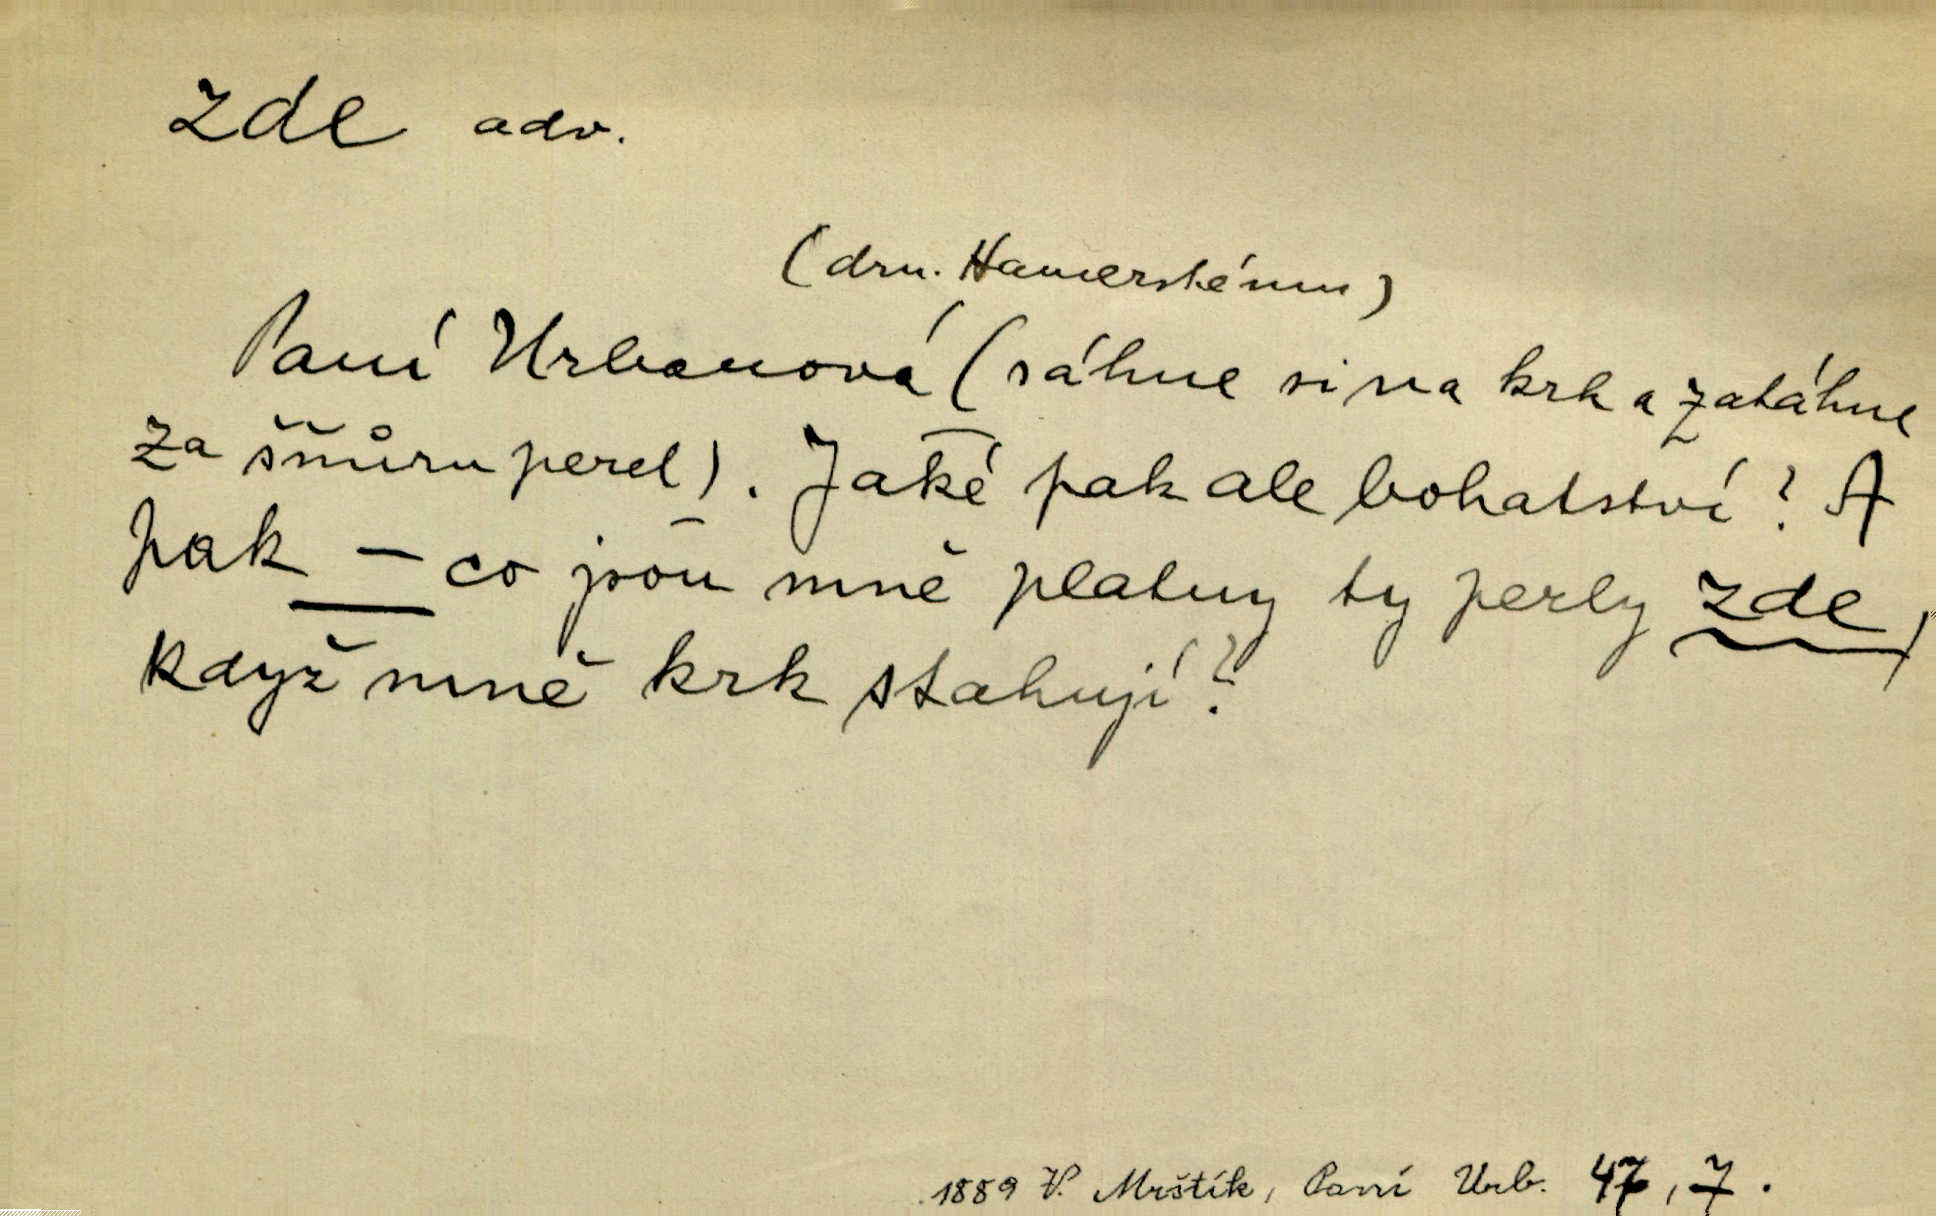 zde adv.
(dru. Hamerskému)
Paní Urbanová (sáhne si na krk a zatáhne
za šňůru perel). Jaké pak ale bohatství? A
pak — co jsou mně platny ty perly zde,
když mně krk stahují?
1889 V. Mrštík, Paní Urb. 47, 7.